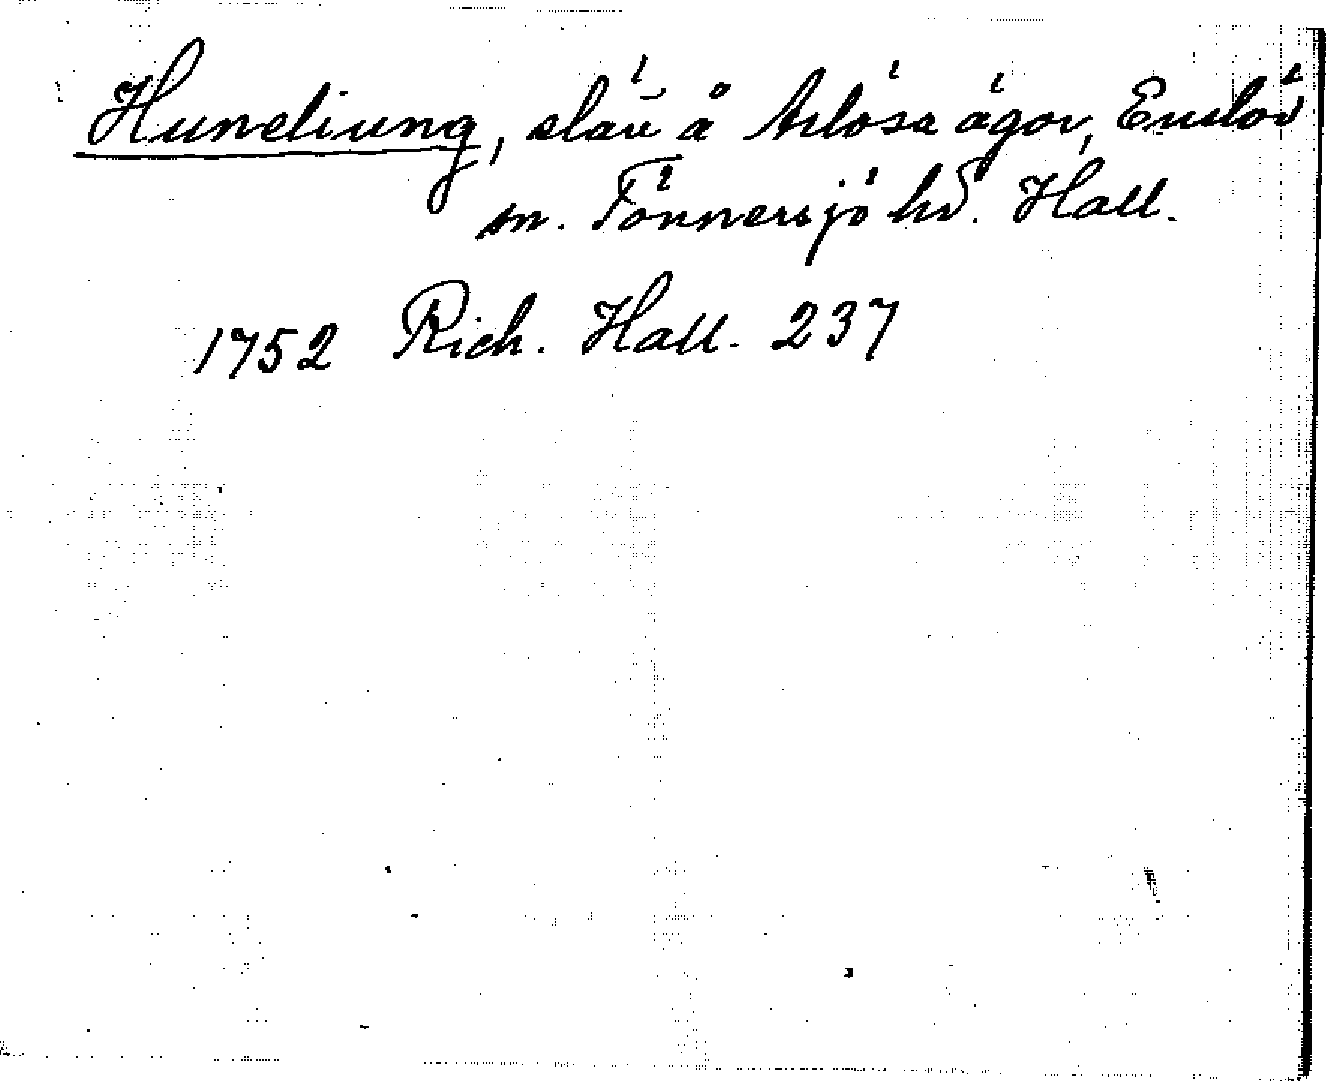 Hundiung, slätt å Årlösa ägor, Enslöv
sn. Tönnersjö hd. Hall.
1752 Rich. Hall. 237